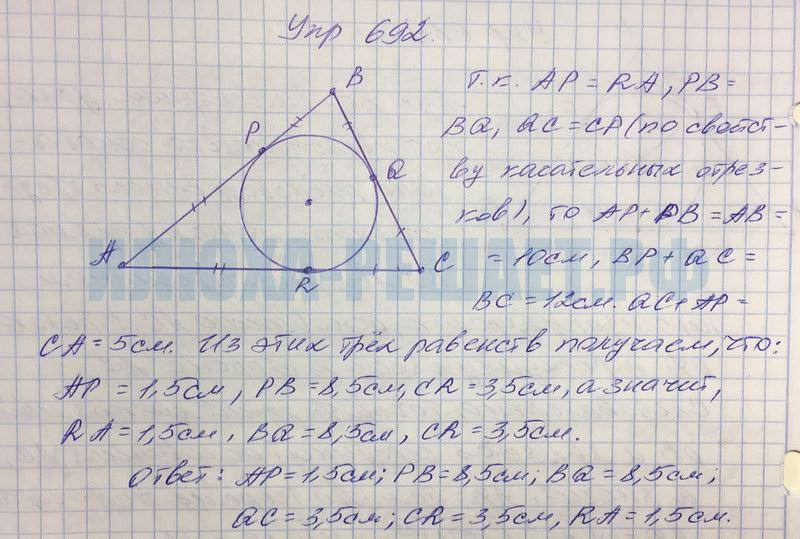 Упр 692.
B
P
Q
A
R
C
Т.к. AP = RA, PB =
BQ, QC = CP (по свойст-
ву касательных отрез-
ков), то AP + PB = AB =
= 10см, BP + QC =
BC = 12см. QC + AP =
CA = 5см. Из этих трёх равенств получаем, что:
AP = 1,5см, PB = 8,5см, CR = 3,5см, а значит,
RA = 1,5см, BQ = 8,5см, CR = 3,5см.
Ответ: AP = 1,5см; PB = 8,5см; BQ = 8,5см;
QC = 3,5см; CR = 3,5см, RA = 1,5см.
ИЛЮХА-РЕШАЕТ.РФ